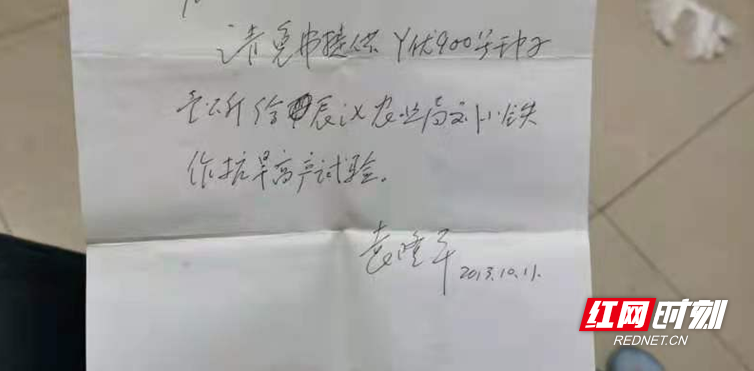 请免费提供 Y优900号种子
壹公斤给辰溪农业局刘小铁
作抗旱高产试验。
袁隆平 2013.10.11.
红网时刻
REDNET.CN